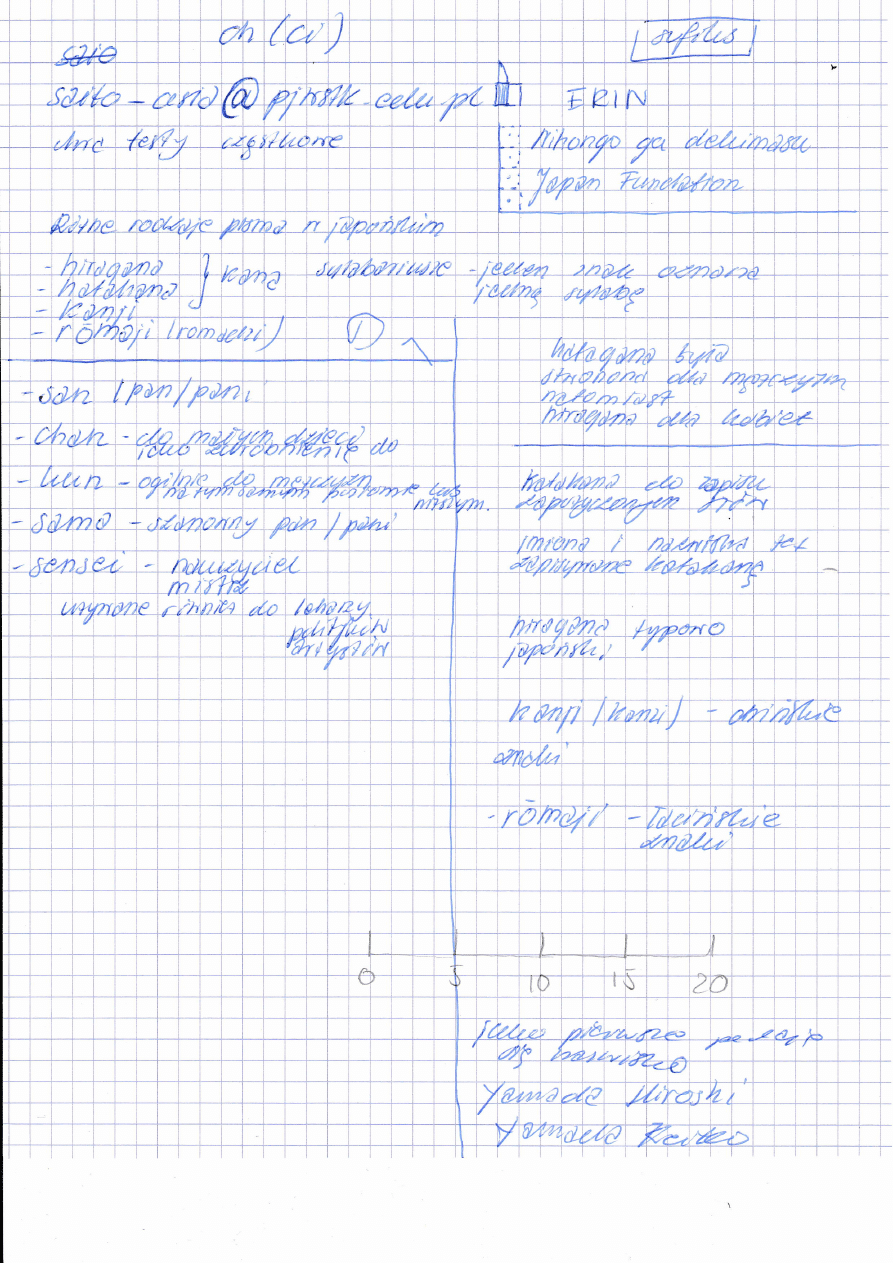 ch (ci)
sufiks
saio
saito-asia@pjwstk.edu.pl
dwa testy cząstkowe
ERIN
Nihongo ga dekimasu
Japan Fundation
Różne rodzaje pisma w japońskim
- hiragana
- katakana
} kana
sylabariusze - jeden znak oznacza
jedną sylabę
- kanji
- rōmaji (romadzi)
1
katagana była
stworzona dla mężczyzn
natomiast
hiragana dla kobiet
- san (pan/pani
- chan - do małych dzieci
lub zdrobnienie do
- kun - ogólnie do mężczyzn
na tym samym poziomie lub
niższym.
- sama - szanowny pan / pani
- sensei - nauczyciel
mistrz
używane również do lekarzy
polityków
artystów
katakana do zapisu
zapożyczonych słów
imiona i nazwiska też
zapisywane katakaną
hiragana typowo
japoński
kanji (kanzi) - chińskie
znaki
- rōmaji - łacińskie
znaki
0 5 10 15 20
jako pierwsze podaje
się nazwisko
Yamada Hiroshi
Yamada Keiko